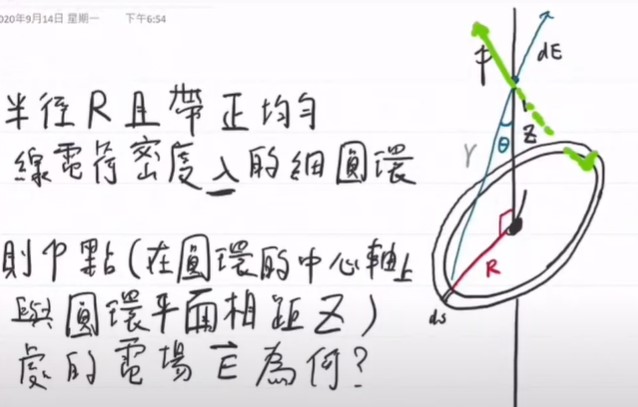 2020年9月14日 星期一 下午6:54
半徑R且帶正均勻
線電荷密度λ的細圓環
則P點(在圓環的中心軸上
與圓環平面相距Z)
處的電場E為何?
P
dE
Z
θ
r
R
ds